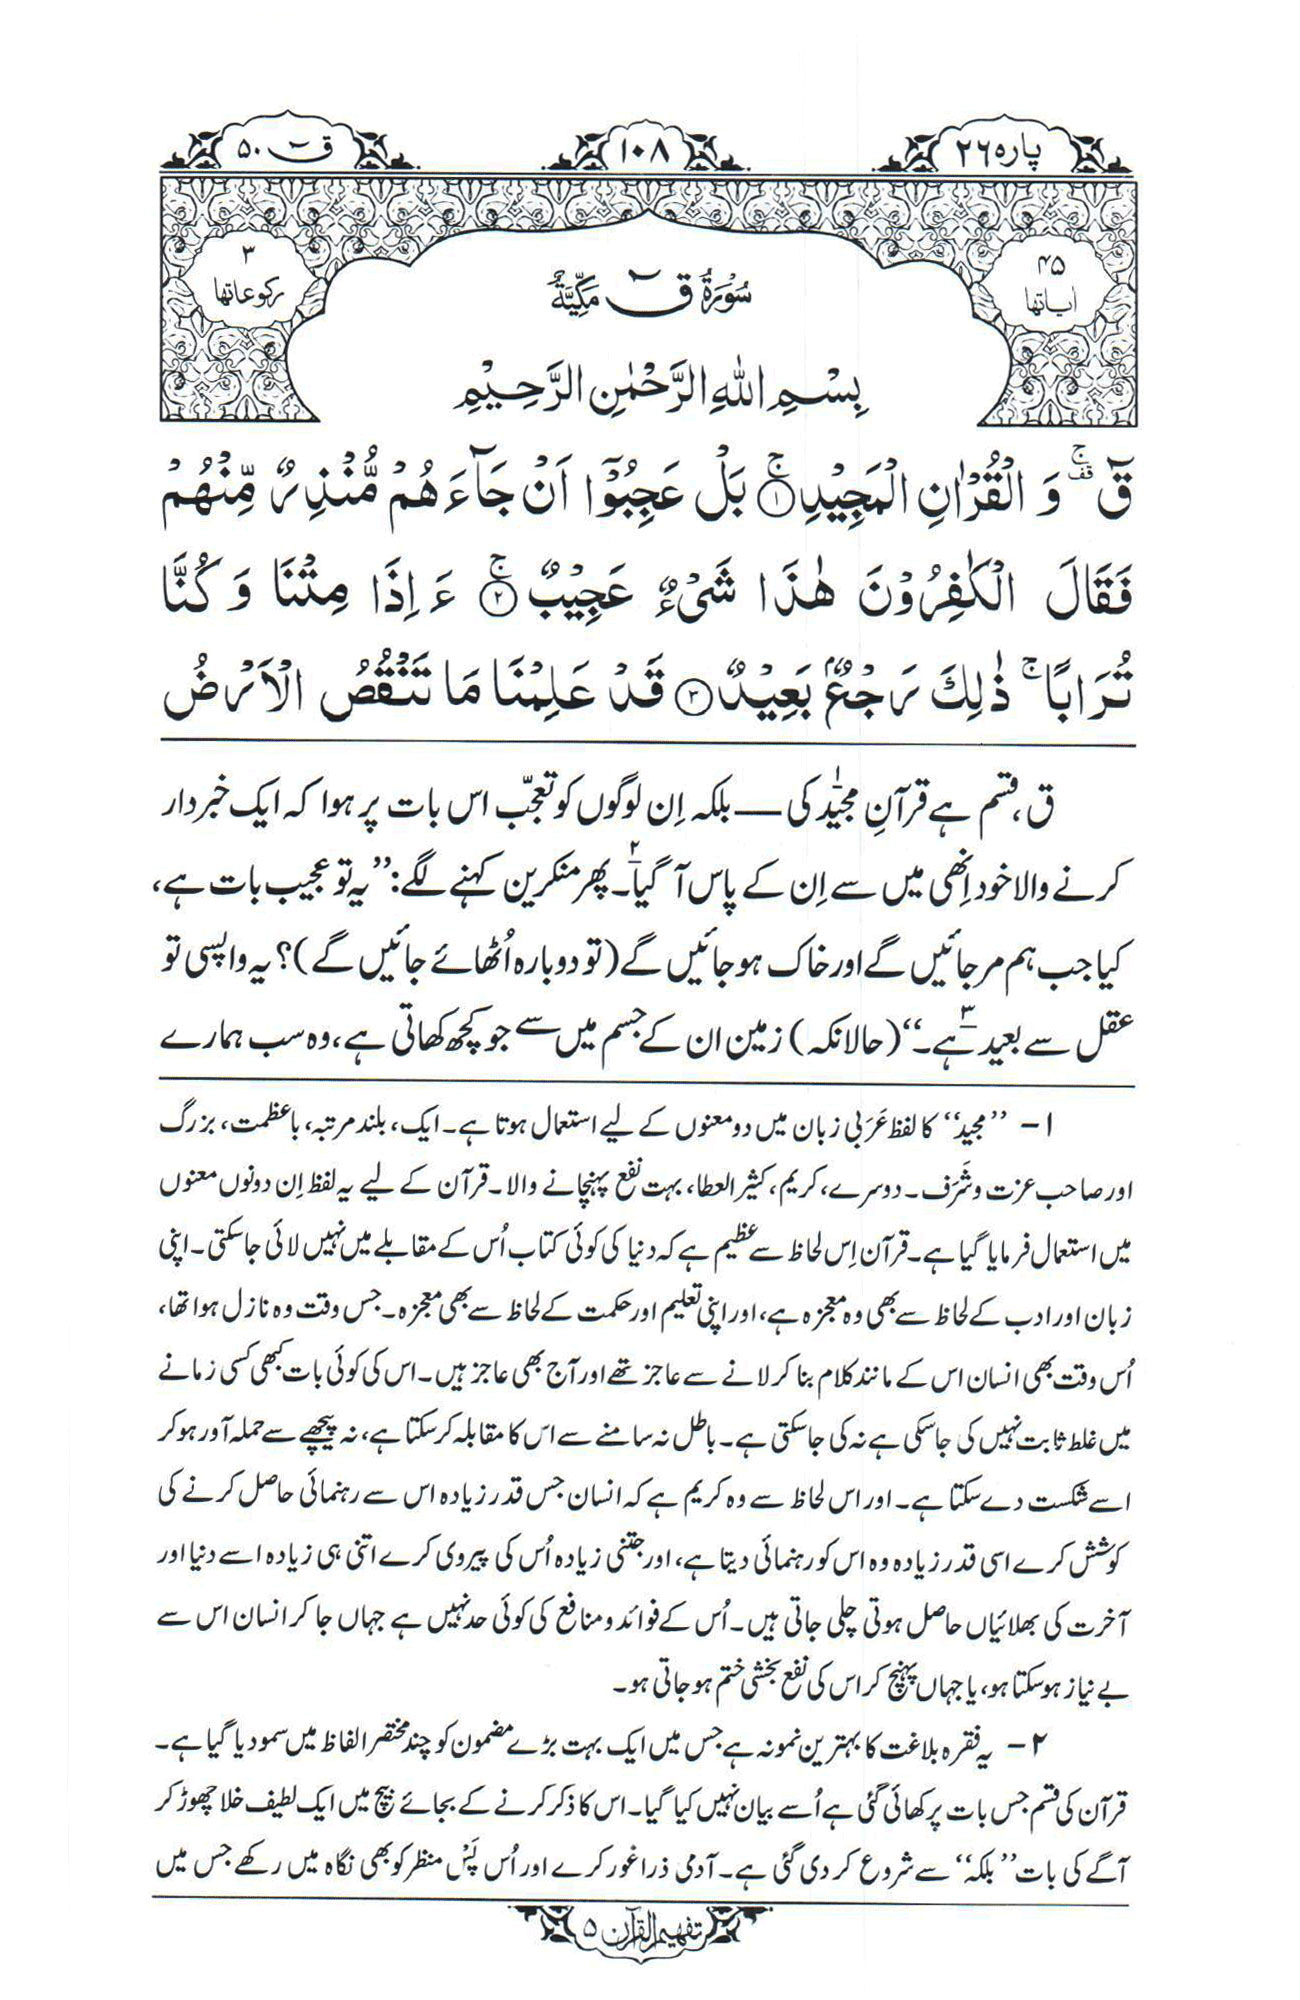 پارہ ۲۶
۱۰۸
قٓ ۵۰
۴۵
اٰیاتھا
سُوْرَۃُ قٓ مَکِّیَّۃٌ
۳
رکوعاتھا
بِسْمِ اللّٰہِ الرَّحْمٰنِ الرَّحِیْمِ
قٓ ۚ۟ وَ الْقُرْاٰنِ الْمَجِیْدِ ۚ﴿۱﴾ بَلْ عَجِبُوْۤا اَنْ جَآءَ ہُمْ مُّنْذِرٌ مِّنْہُمْ
فَقَالَ الْکٰفِرُوْنَ ہٰذَا شَیْءٌ عَجِیْبٌ ۚ﴿۲﴾ ءَ اِذَا مِتْنَا وَ کُنَّا
تُرَابًا ۚ ذٰلِکَ رَجْعٌۢ بَعِیْدٌ ﴿۳﴾ قَدْ عَلِمْنَا مَا تَنْقُصُ الْاَرْضُ
ق، قسم ہے قرآنِ مجید۱ کی — بلکہ اِن لوگوں کو تعجّب اس بات پر ہوا کہ ایک خبردار
کرنے والا خود اِنھی میں سے اِن کے پاس آگیا۲۔ پھر منکرین کہنے لگے: ”یہ تو عجیب بات ہے،
کیا جب ہم مرجائیں گے اور خاک ہوجائیں گے (تو دوبارہ اُٹھائے جائیں گے)؟ یہ واپسی تو
عقل سے بعید۳ ہے۔“ (حالانکہ) زمین ان کے جسم میں سے جو کچھ کھاتی ہے، وہ سب ہمارے
۱- ”مجید“ کا لفظ عَربی زبان میں دو معنوں کے لیے استعمال ہوتا ہے۔ ایک، بلند مرتبہ، باعظمت، بزرگ
اور صاحب عزت و شَرَف۔ دوسرے، کریم، کثیر العطا، بہت نفع پہنچانے والا۔ قرآن کے لیے یہ لفظ اِن دونوں معنوں
میں استعمال فرمایا گیا ہے۔ قرآن اِس لحاظ سے عظیم ہے کہ دنیا کی کوئی کتاب اُس کے مقابلے میں نہیں لائی جاسکتی۔ اپنی
زبان اور ادب کے لحاظ سے بھی وہ معجزہ ہے، اور اپنی تعلیم اور حکمت کے لحاظ سے بھی معجزہ۔ جس وقت وہ نازل ہوا تھا،
اُس وقت بھی انسان اس کے مانند کلام بنا کر لانے سے عاجز تھے اور آج بھی عاجز ہیں۔ اس کی کوئی بات کبھی کسی زمانے
میں غلط ثابت نہیں کی جاسکی ہے نہ کی جاسکتی ہے۔ باطل نہ سامنے سے اس کا مقابلہ کرسکتا ہے، نہ پیچھے سے حملہ آور ہوکر
اسے شکست دے سکتا ہے۔ اور اس لحاظ سے وہ کریم ہے کہ انسان جس قدر زیادہ اس سے رہنمائی حاصل کرنے کی
کوشش کرے اسی قدر زیادہ وہ اس کو رہنمائی دیتا ہے، اور جتنی زیادہ اُس کی پیروی کرے اتنی ہی زیادہ اسے دنیا اور
آخرت کی بھلائیاں حاصل ہوتی چلی جاتی ہیں۔ اُس کے فوائد و منافع کی کوئی حد نہیں ہے جہاں جا کر انسان اس سے
بے نیاز ہوسکتا ہو، یا جہاں پہنچ کر اس کی نفع بخشی ختم ہوجاتی ہو۔
۲- یہ فقرہ بلاغت کا بہترین نمونہ ہے جس میں ایک بہت بڑے مضمون کو چند مختصر الفاظ میں سمو دیا گیا ہے۔
قرآن کی قسم جس بات پر کھائی گئی ہے اُسے بیان نہیں کیا گیا۔ اس کا ذکر کرنے کے بجائے بیچ میں ایک لطیف خلا چھوڑ کر
آگے کی بات ”بلکہ“ سے شروع کردی گئی ہے۔ آدمی ذرا غور کرے اور اُس پَسْ منظر کو بھی نگاہ میں رکھے جس میں
تفہیم القرآن ۵